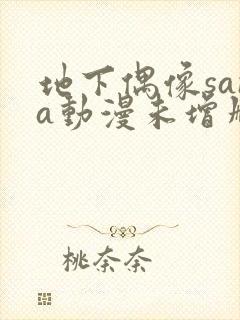 地下偶像sa
a動漫未增
桃奈奈